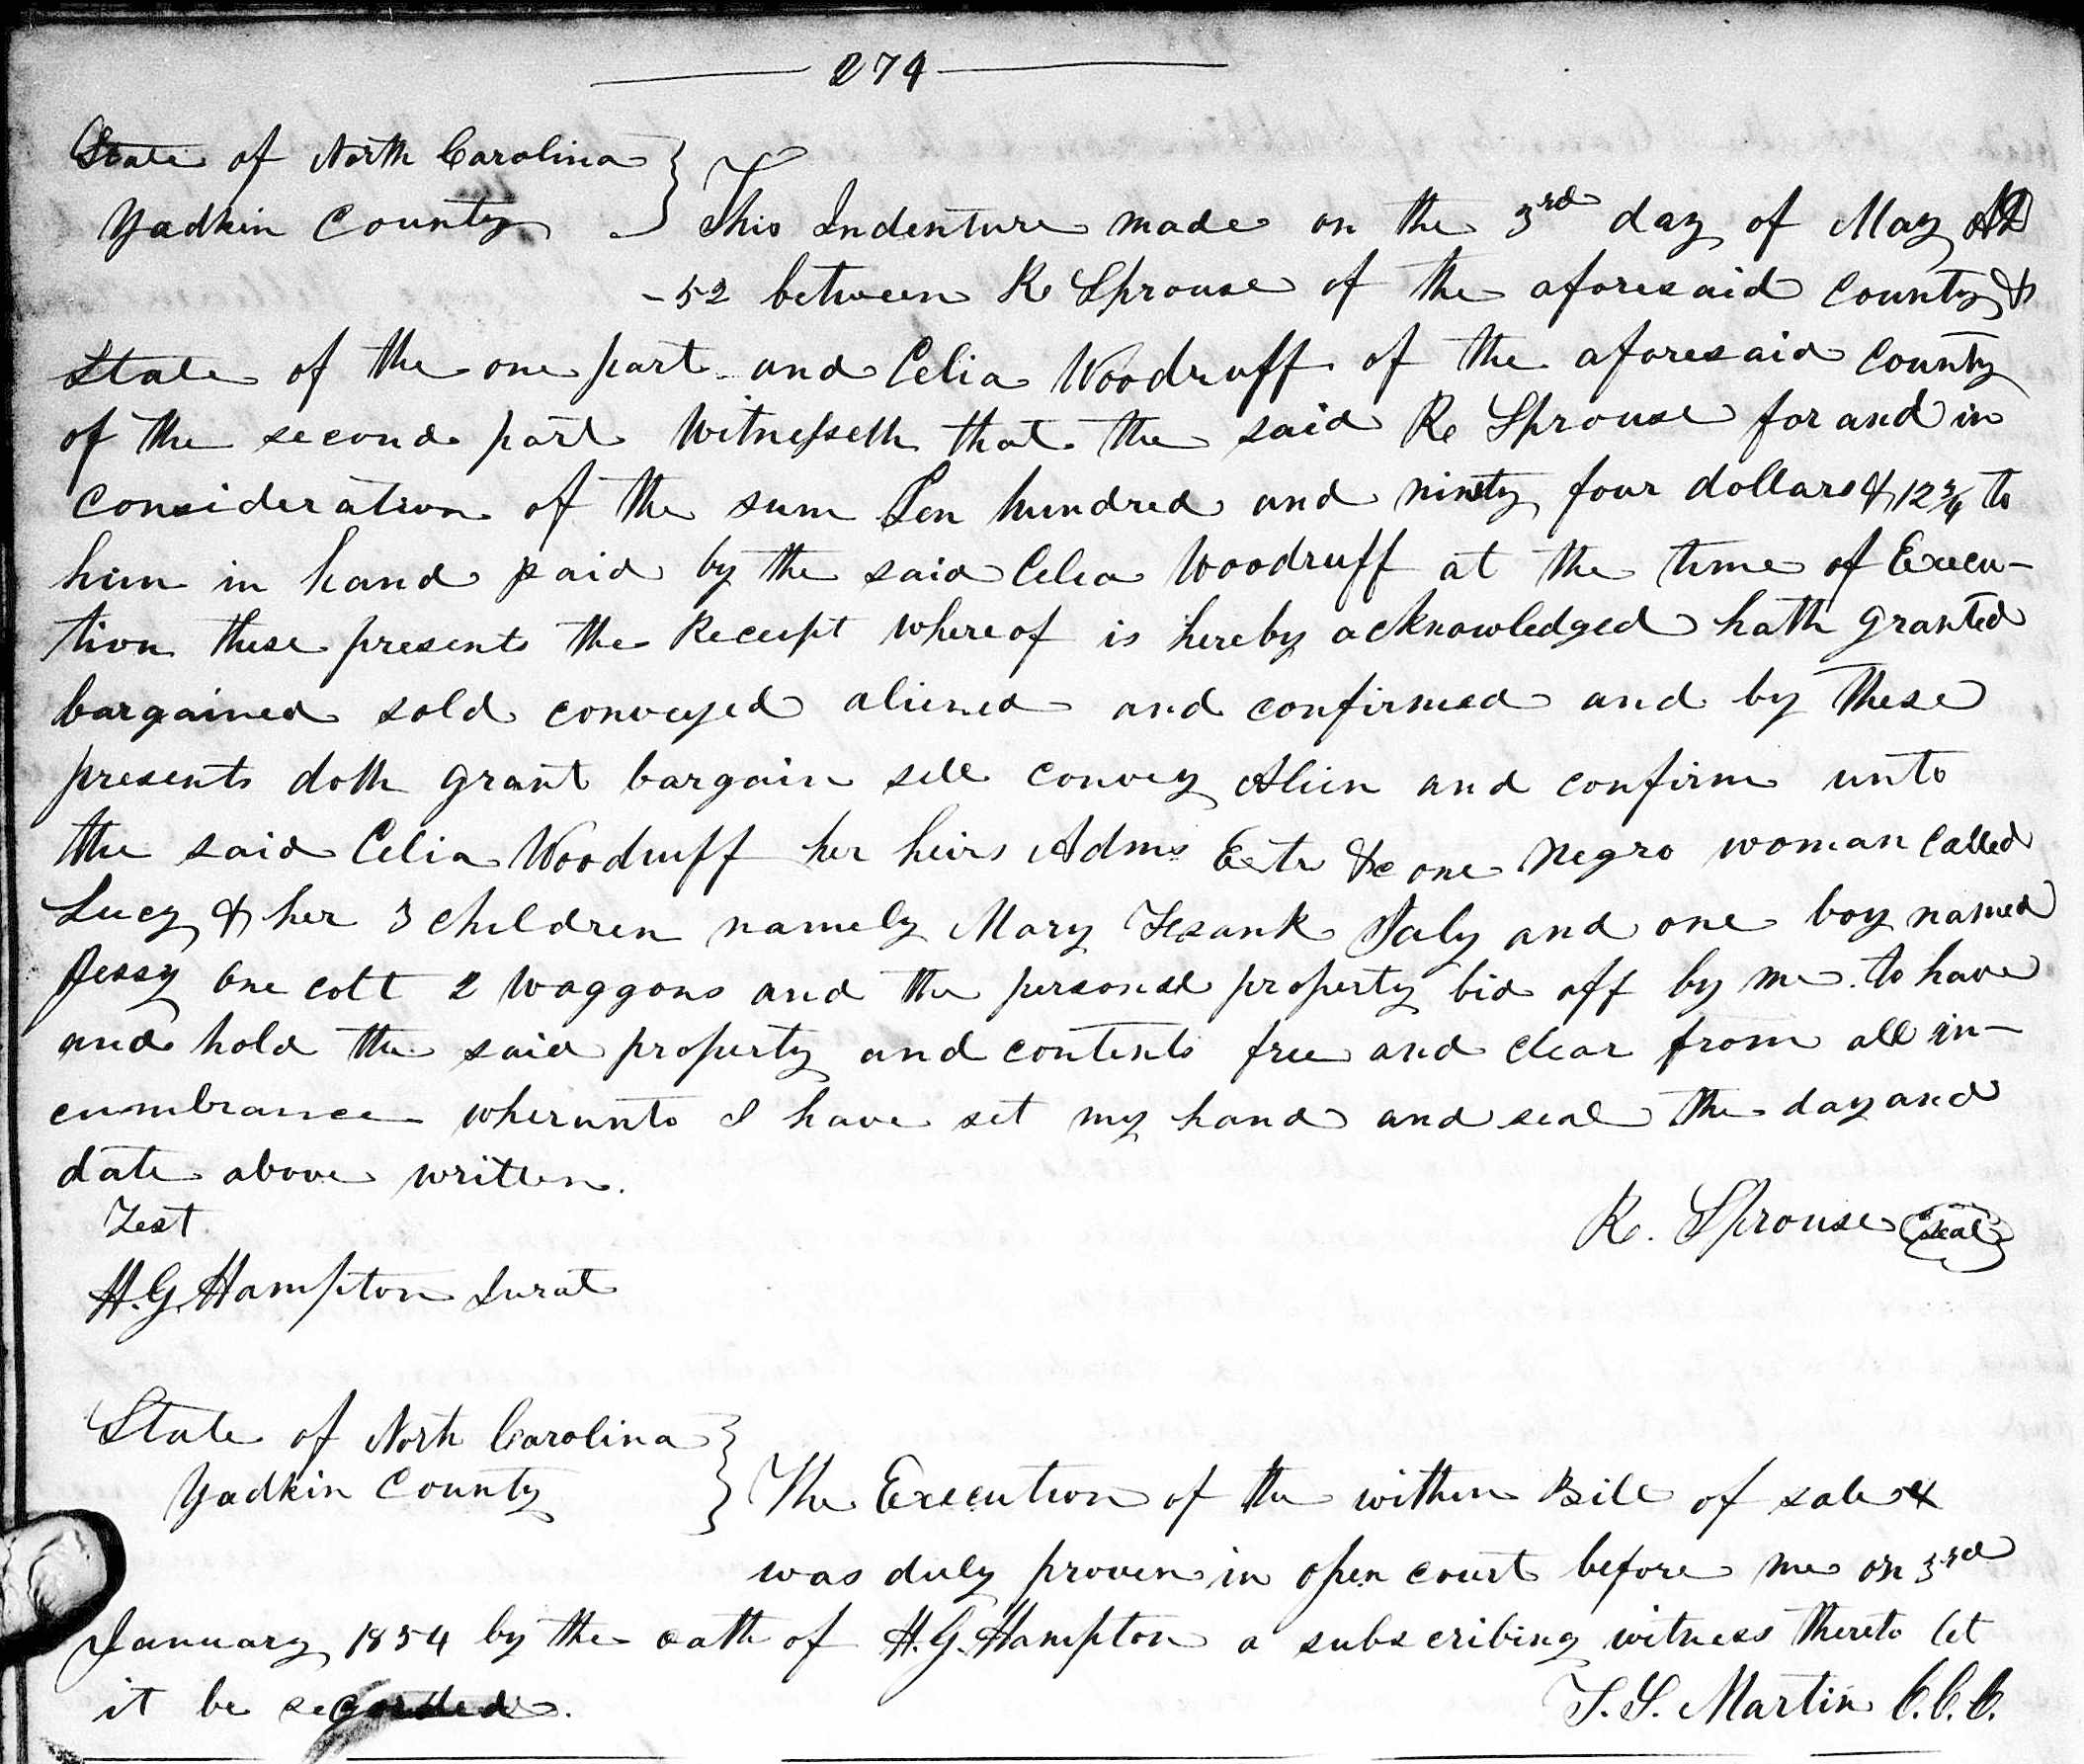 274
State of North Carolina
Yadkin County } This Indenture made on the 3rd day of May AD
-52 between R Sprouse of the aforesaid County &
State of the one part and Celia Woodruff of the aforesaid County
of the second part Witnesseth that the said R Sprouse for and in
consideration of the sum Ten hundred and ninety four dollars & 12 3/4 to
him in hand paid by the said Celia Woodruff at the time of Execu-
tion these presents the Receipt whereof is hereby acknowledged hath granted
bargained sold conveyed aliened and confirmed and by these
presents doth grant bargain sell convey Alien and confirm unto
the said Celia Woodruff her heirs Adms &c one Negro woman Called
Lucy & her 3 children namely Mary and one boy named
Jessy one colt 2 waggons and the personal property bid off by me to have
and hold the said property and contents free and clear from all in-
cumbrance wherunto I have set my hand and seal the day and
date above written.
Test R. Sprouse seal
H. G. Hampton Jurat
State of North Carolina
Yadkin County } The Execution of the within Bill of sale
was duly proven in open court before me on 3rd
January 1854 by the oath of H. G. Hampton a subscribing witness thereto let
it be recorded. T. S. Martin C.C.C.